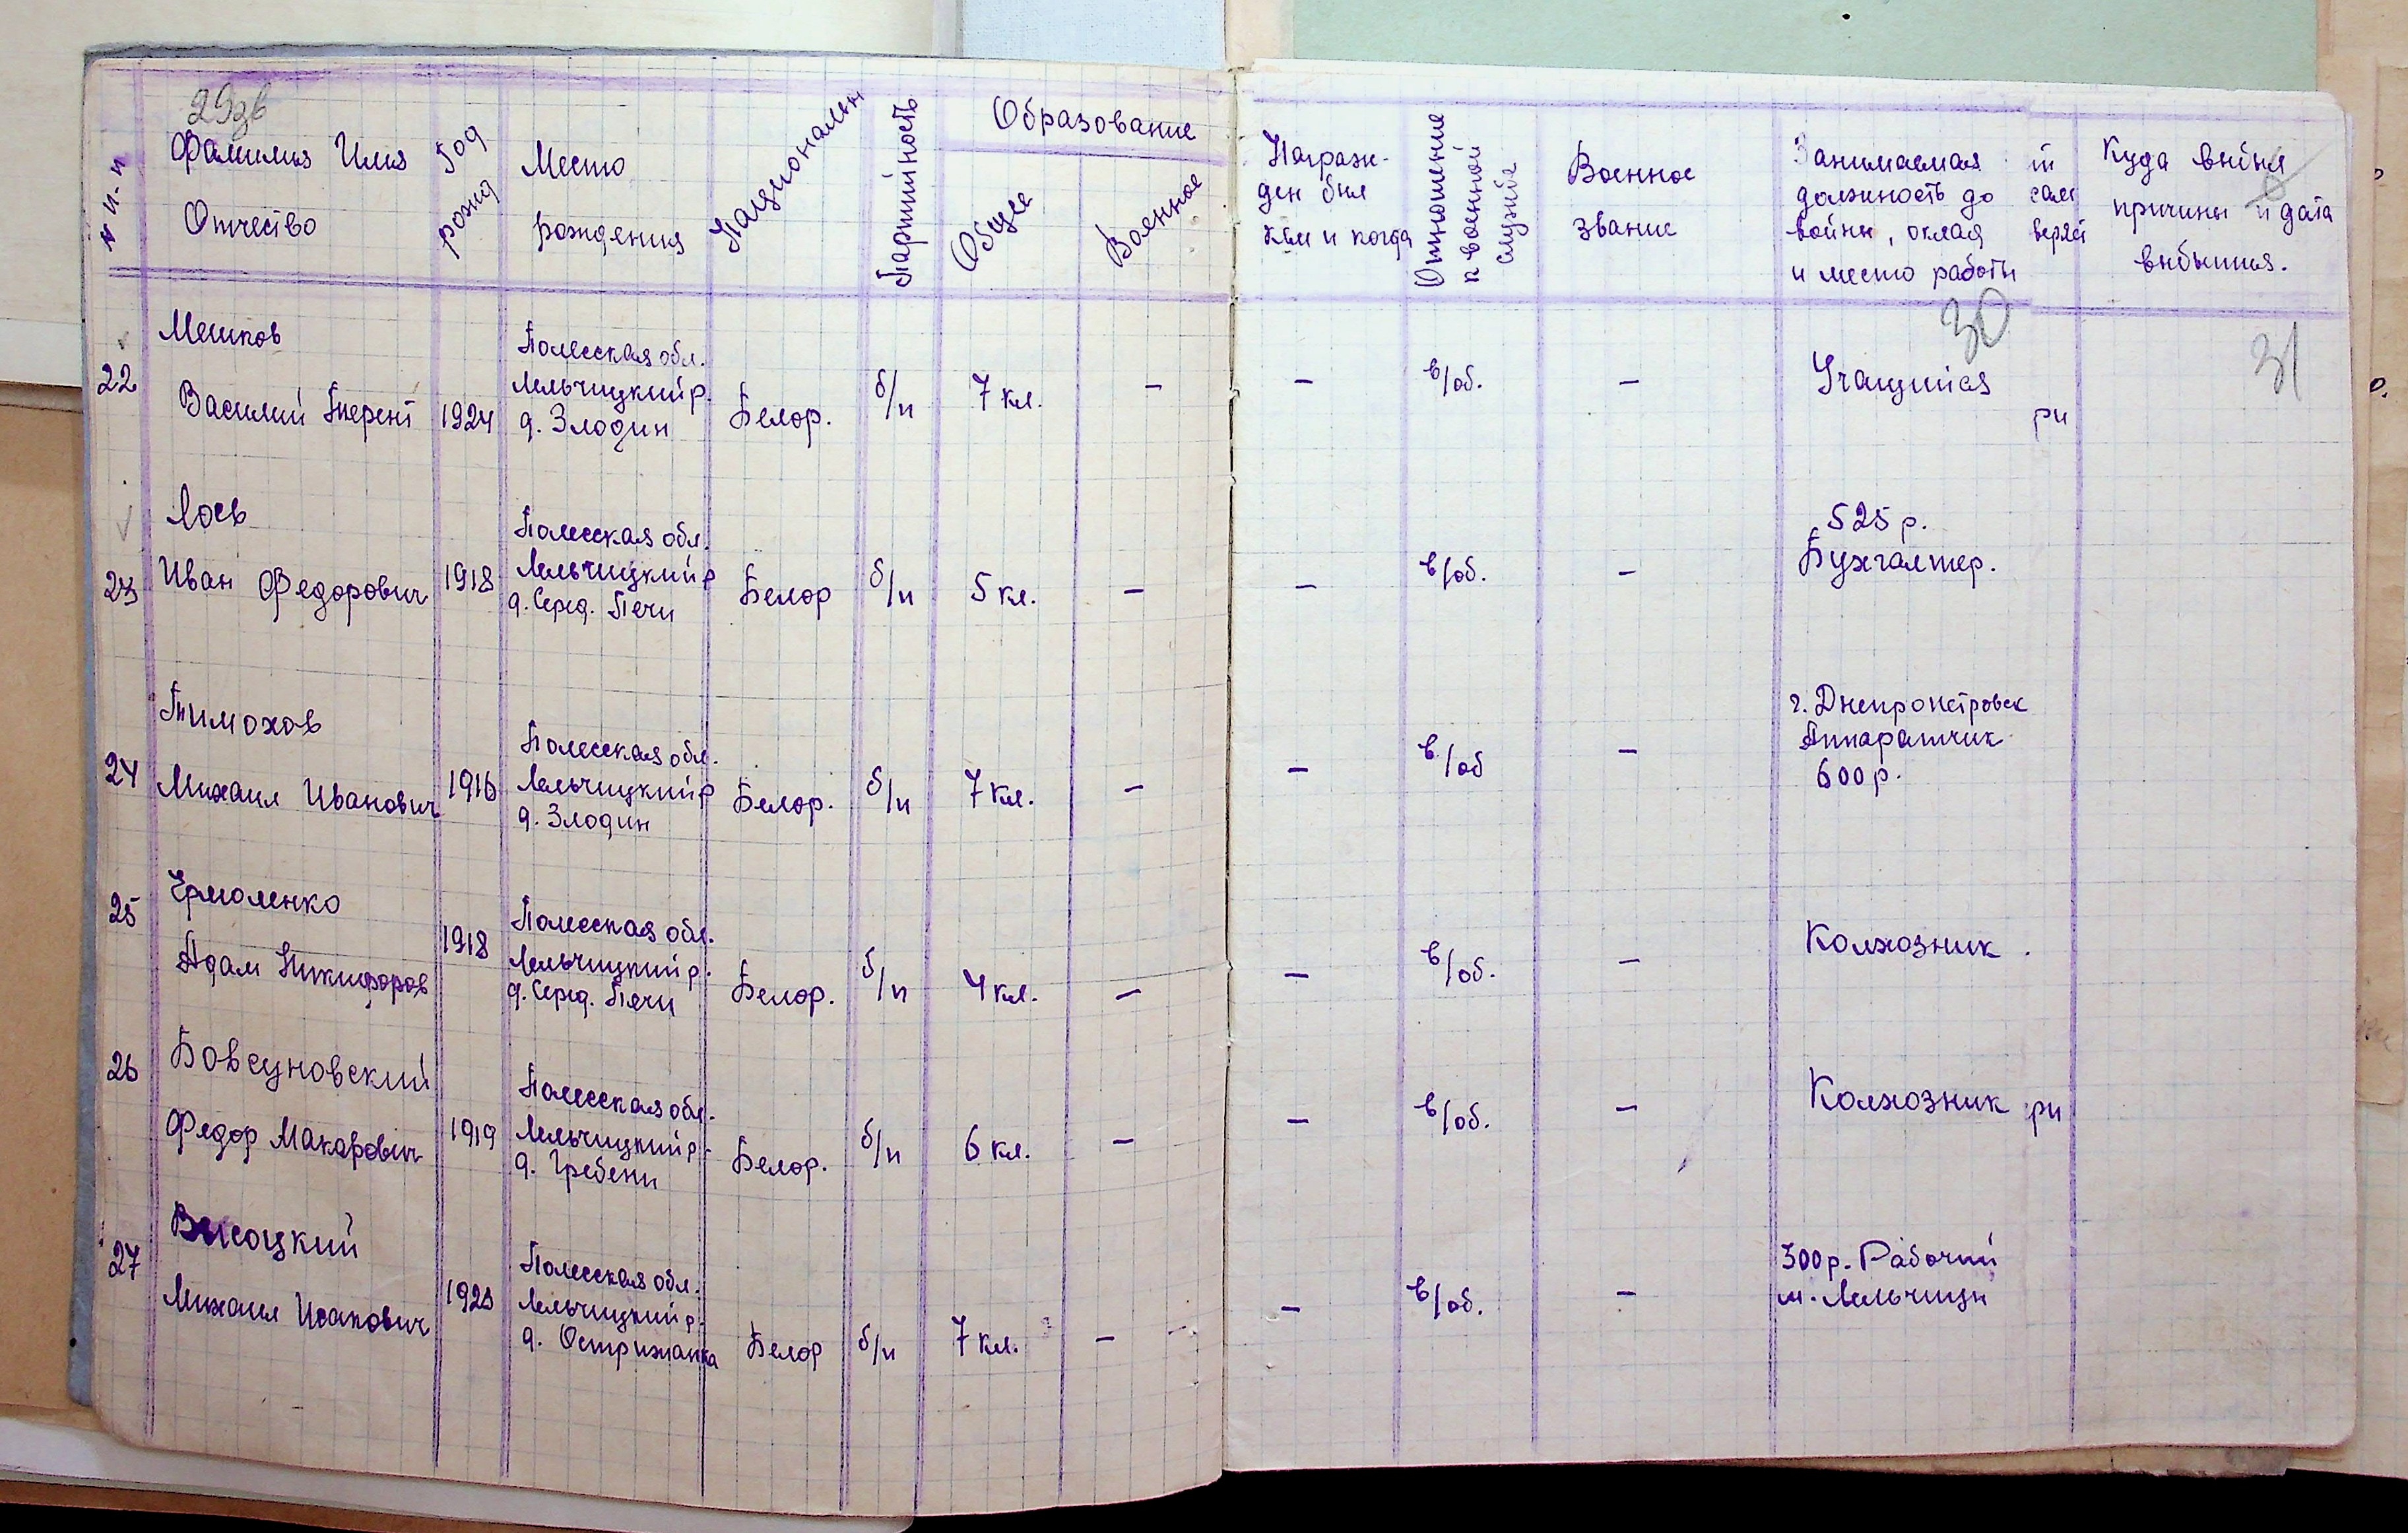 29зв
№ п-п
Фамилия Имя
Отчество
Год
рожд
Место
рождения
Национальн
Партийность
Образование
Общее
Военное
Награж-
ден был
кем и когда
Отношение
к военной
службе
Военное
звание
Занимаемая
должность до
войны, оклад
и место работы
Куда выбыл
причины и дата
выбытия.
30
31
22
Мешков
Василий Терент
1924
Полесская обл.
Лельчицкий р.
д. Злодин
Белор.
б/п
7 кл.
–
–
в/об.
–
Учащийся
ри
23
Лось
Иван Федорович
1918
Полесская обл.
Лельчицкий р
д. Серед. Печи
Белор
б/п
5 кл.
–
–
в/об.
–
525 р.
Бухгалтер.
24
Тимохов
Михаил Иванович
1916
Полесская обл.
Лельчицкий р
д. Злодин
Белор.
б/п
7 кл.
–
–
в/об
–
г. Днепропетровск
Аппаратчик
600 р.
25
Ермоленко
Адам Никифоров
1918
Полесская обл.
Лельчицкий р.
д. Серед. Печи
Белор.
б/п
4 кл.
–
–
в/об.
–
Колхозник.
26
Бовсуновский
Федор Макарович
1919
Полесская обл.
Лельчицкий р.
д. Гребени
Белор.
б/п
6 кл.
–
–
в/об.
–
Колхозник
ри
27
Высоцкий
Михаил Исакович
Полесская обл.
Лельчицкий р.
д. Острижанка
Белор
б/п
7 кл.
–
–
в/об.
–
300 р. Рабочий
м. Лельчицы